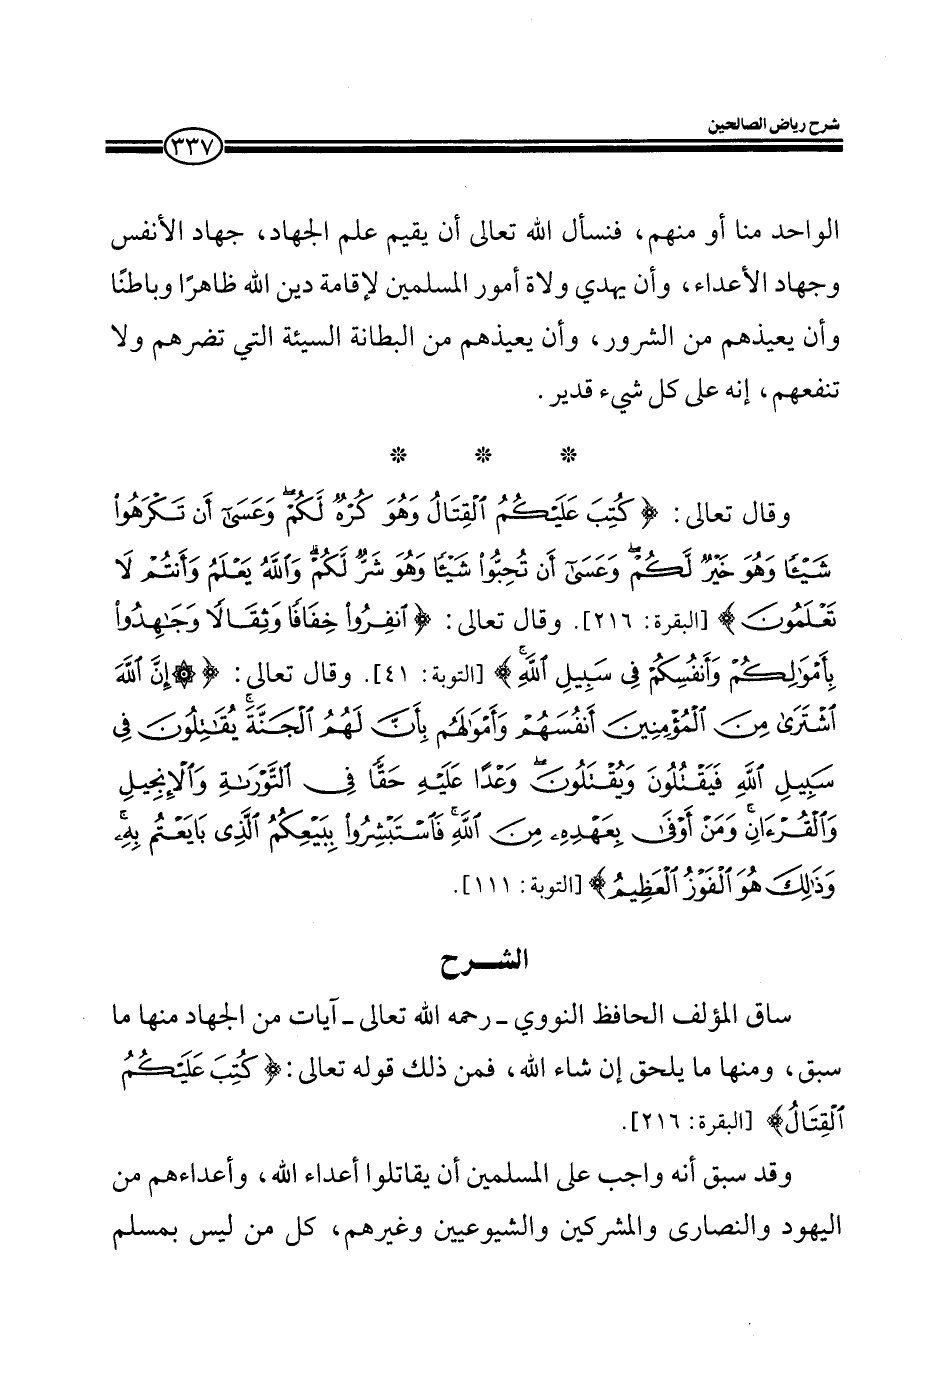 شرح رياض الصالحين
٣٣٧
الواحد منا أو منهم، فنسأل الله تعالى أن يقيم علم الجهاد، جهاد الأنفس
وجهاد الأعداء، وأن يهدي ولاة أمور المسلمين لإقامة دين الله ظاهرًا وباطنًا
وأن يعيذهم من الشرور، وأن يعيذهم من البطانة السيئة التي تضرهم ولا
تنفعهم، إنه على كل شيء قدير.
* * *
وقال تعالى: ﴿ كُتِبَ عَلَيْكُمُ ٱلْقِتَالُ وَهُوَ كُرْهٌ لَّكُمْ ۖ وَعَسَىٰٓ أَن تَكْرَهُوا۟
شَيْـًٔا وَهُوَ خَيْرٌ لَّكُمْ ۖ وَعَسَىٰٓ أَن تُحِبُّوا۟ شَيْـًٔا وَهُوَ شَرٌّ لَّكُمْ ۗ وَٱللَّهُ يَعْلَمُ وَأَنتُمْ لَا
تَعْلَمُونَ ﴾ [البقرة: ٢١٦]. وقال تعالى: ﴿ ٱنفِرُوا۟ خِفَافًا وَثِقَالًا وَجَـٰهِدُوا۟
بِأَمْوَٰلِكُمْ وَأَنفُسِكُمْ فِى سَبِيلِ ٱللَّهِ ۚ ﴾ [التوبة: ٤١]. وقال تعالى: ﴿ ۞ إِنَّ ٱللَّهَ
ٱشْتَرَىٰ مِنَ ٱلْمُؤْمِنِينَ أَنفُسَهُمْ وَأَمْوَٰلَهُم بِأَنَّ لَهُمُ ٱلْجَنَّةَ ۚ يُقَـٰتِلُونَ فِى
سَبِيلِ ٱللَّهِ فَيَقْتُلُونَ وَيُقْتَلُونَ ۖ وَعْدًا عَلَيْهِ حَقًّا فِى ٱلتَّوْرَىٰةِ وَٱلْإِنجِيلِ
وَٱلْقُرْءَانِ ۚ وَمَنْ أَوْفَىٰ بِعَهْدِهِۦ مِنَ ٱللَّهِ ۚ فَٱسْتَبْشِرُوا۟ بِبَيْعِكُمُ ٱلَّذِى بَايَعْتُم بِهِۦ ۚ
وَذَٰلِكَ هُوَ ٱلْفَوْزُ ٱلْعَظِيمُ ﴾ [التوبة: ١١١].
الشرح
ساق المؤلف الحافظ النووي ـ رحمه الله تعالى ـ آيات من الجهاد منها ما
سبق، ومنها ما يلحق إن شاء الله، فمن ذلك قوله تعالى: ﴿ كُتِبَ عَلَيْكُمُ
ٱلْقِتَالُ ﴾ [البقرة: ٢١٦].
وقد سبق أنه واجب على المسلمين أن يقاتلوا أعداء الله، وأعداءهم من
اليهود والنصارى والمشركين والشيوعيين وغيرهم، كل من ليس بمسلم